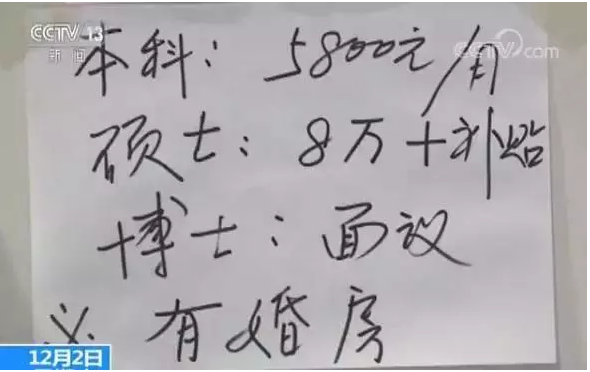 CCTV 13
新闻
CCTV.com
本科：5800元/月
硕士：8万+补贴
博士：面议
※ 有婚房
12月2日